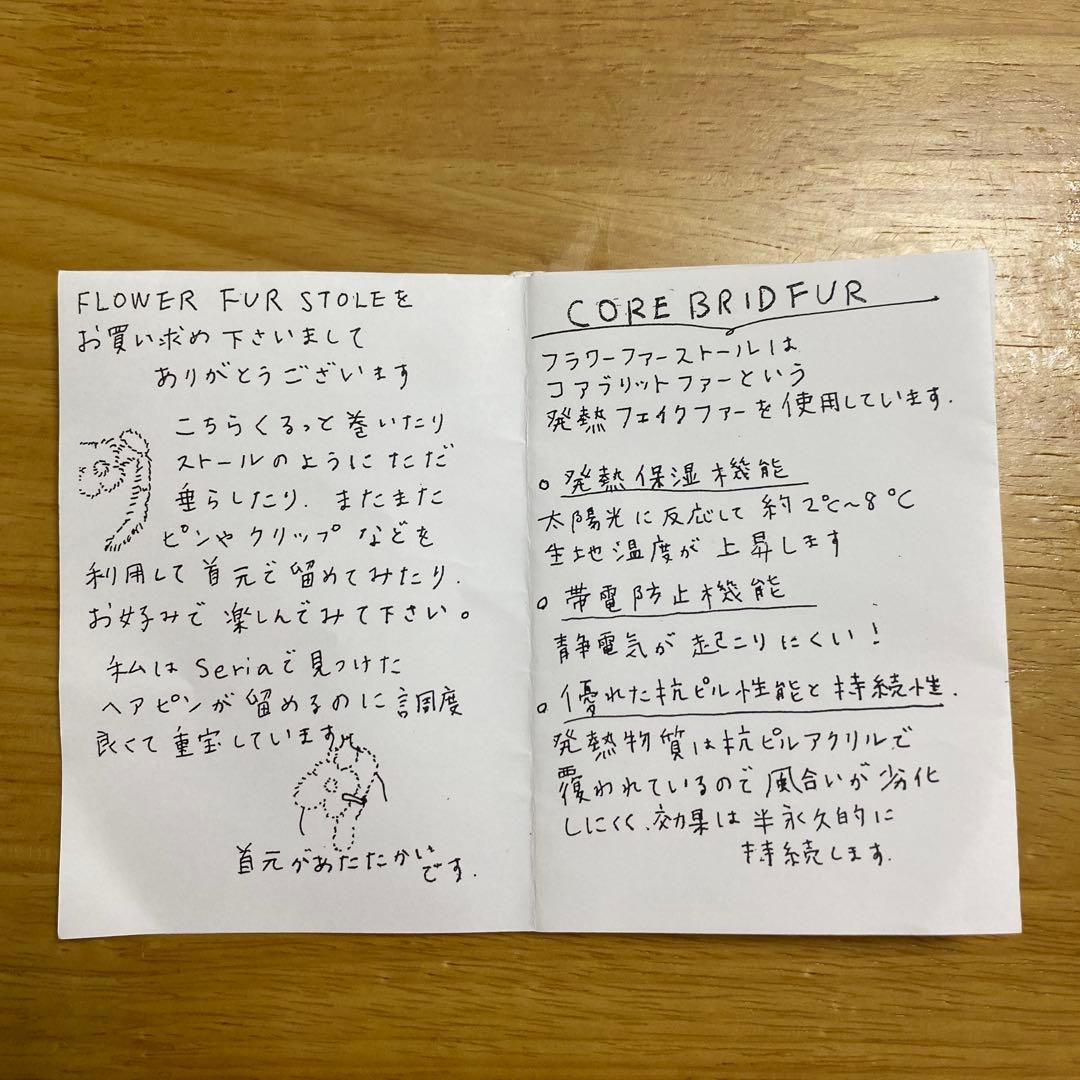 FLOWER FUR STOLEを
お買い求め下さいまして
ありがとうございます
こちらくるっと巻いたり
ストールのようにただ
垂らしたり、またまた
ピンやクリップなどを
利用して首元で留めてみたり、
お好みで楽しんでみて下さい。
私はSeriaで見つけた
ヘアピンが留めるのに調度
良くて重宝しています
首元があたたかい
です.
CORE BRID FUR
フラワーファーストールは
コアブリットファーという
発熱フェイクファーを使用しています.
○ 発熱保湿機能
太陽光に反応して約2℃〜8℃
生地温度が上昇します
○ 帯電防止機能
静電気が起こりにくい!
○ 優れた抗ピル性能と持続性.
発熱物質は抗ピルアクリルで
覆われているので風合いが劣化
しにくく、効果は半永久的に
持続します.